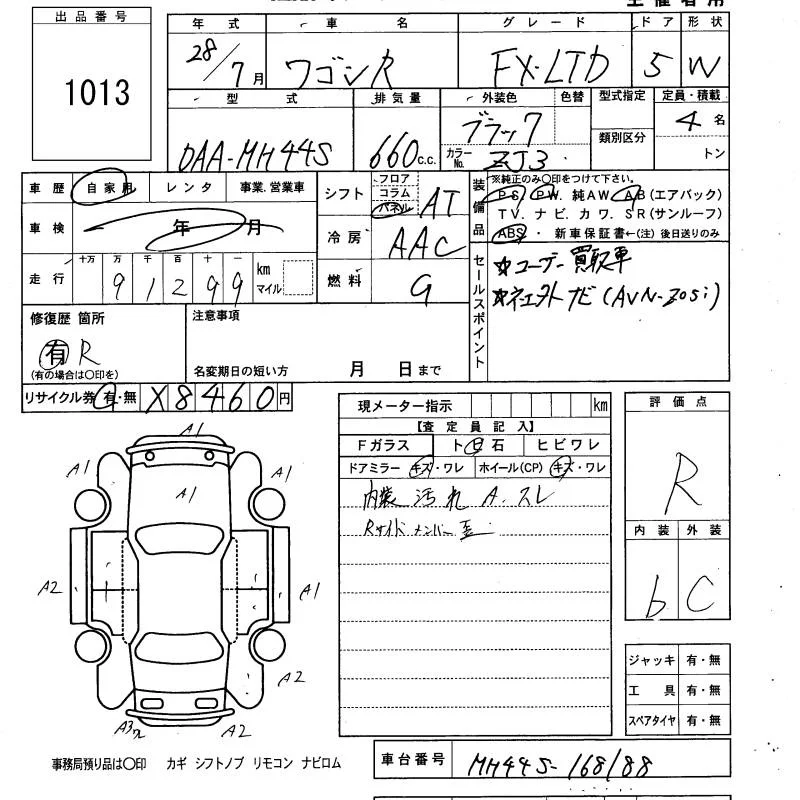 出品番号
1013
年式 車名 グレード ドア 形状
28/7月 ワゴンR FX-LTD 5 W
型式 排気量 外装色 色替 型式指定 定員・積載
DAA-MH44S 660c.c. ブラック 類別区分 4名
カラーNo. ZJ3 トン
車歴 自家用 レンタ 事業.営業車
車検 年 月
走行 十万 万 千 百 十 一 km マイル
91299
シフト フロア コラム パネル AT
冷房 AAC
燃料 G
装備品
※純正のみ○印をつけて下さい。
PS. PW. 純AW. AB(エアバック)
TV. ナビ. カワ. SR(サンルーフ)
ABS・ 新車保証書←(注)後日送りのみ
セールスポイント
☆ユーザー買取車
☆ ナビ(AVN-Z05i)
修復歴 箇所
有 R
(有の場合は○印を)
注意事項
名変期日の短い方 月 日まで
リサイクル券 有・無 8460円
現メーター指示 km
【査定員記入】
Fガラス ト 石 ヒビワレ
ドアミラー キズ・ワレ ホイール(CP) キズ・ワレ
内装 汚れ A.スレ
Rサイドメンバー
評価点
R
内装 外装
b C
A1
A1 A1
A1
A2 A1
A2
A3 A2
ジャッキ 有・無
工具 有・無
スペアタイヤ 有・無
事務局預り品は○印 カギ シフトノブ リモコン ナビロム
車台番号 MH44S-168188